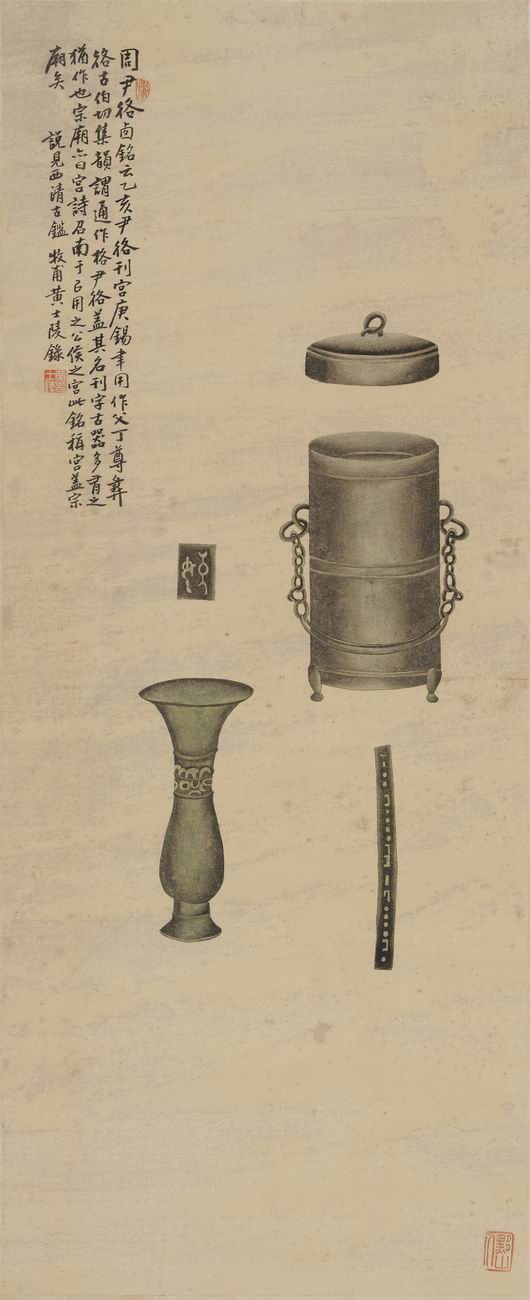 周尹䋚卣銘云乙亥尹䋚刊宮庚錫聿用作父丁尊彝
䋚古伯切集韻謂通作格尹䋚蓋其名刊字古器多有之
猶作也宗廟亦曰宮詩召南于以用之公侯之宮此銘稱宮蓋宗
廟矣 說見西清古鑑 牧甫黃士陵錄